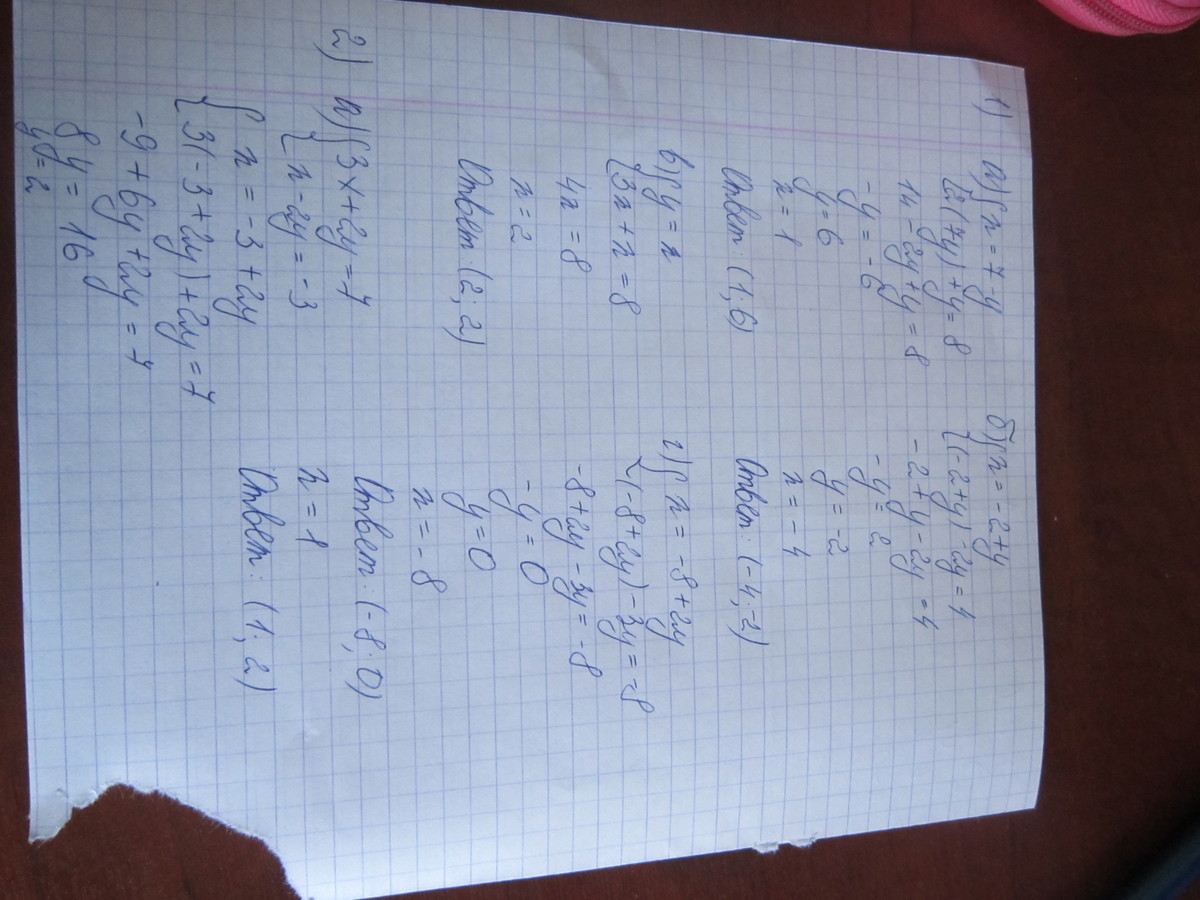 1) а) { x = 7 - y
{ 2(7-y) + y = 8
14 - 2y + y = 8
-y = -6
y = 6
x = 1
Ответ: (1; 6)
б) { x = -2 + y
{ (-2 + y) - 2y = 4
-2 + y - 2y = 4
-y = 2
y = -2
x = -4
Ответ: (-4; -2)
в) { y = x
{ 3x + x = 8
4x = 8
x = 2
Ответ: (2; 2)
г) { x = -8 + 2y
{ (-8 + 2y) - 3y = -8
-8 + 2y - 3y = -8
-y = 0
y = 0
x = -8
Ответ: (-8; 0)
2) а) { 3x + 2y = 7
{ x - 2y = -3
{ x = -3 + 2y
{ 3(-3 + 2y) + 2y = 7
-9 + 6y + 2y = 7
8y = 16
y = 2
x = 1
Ответ: (1; 2)